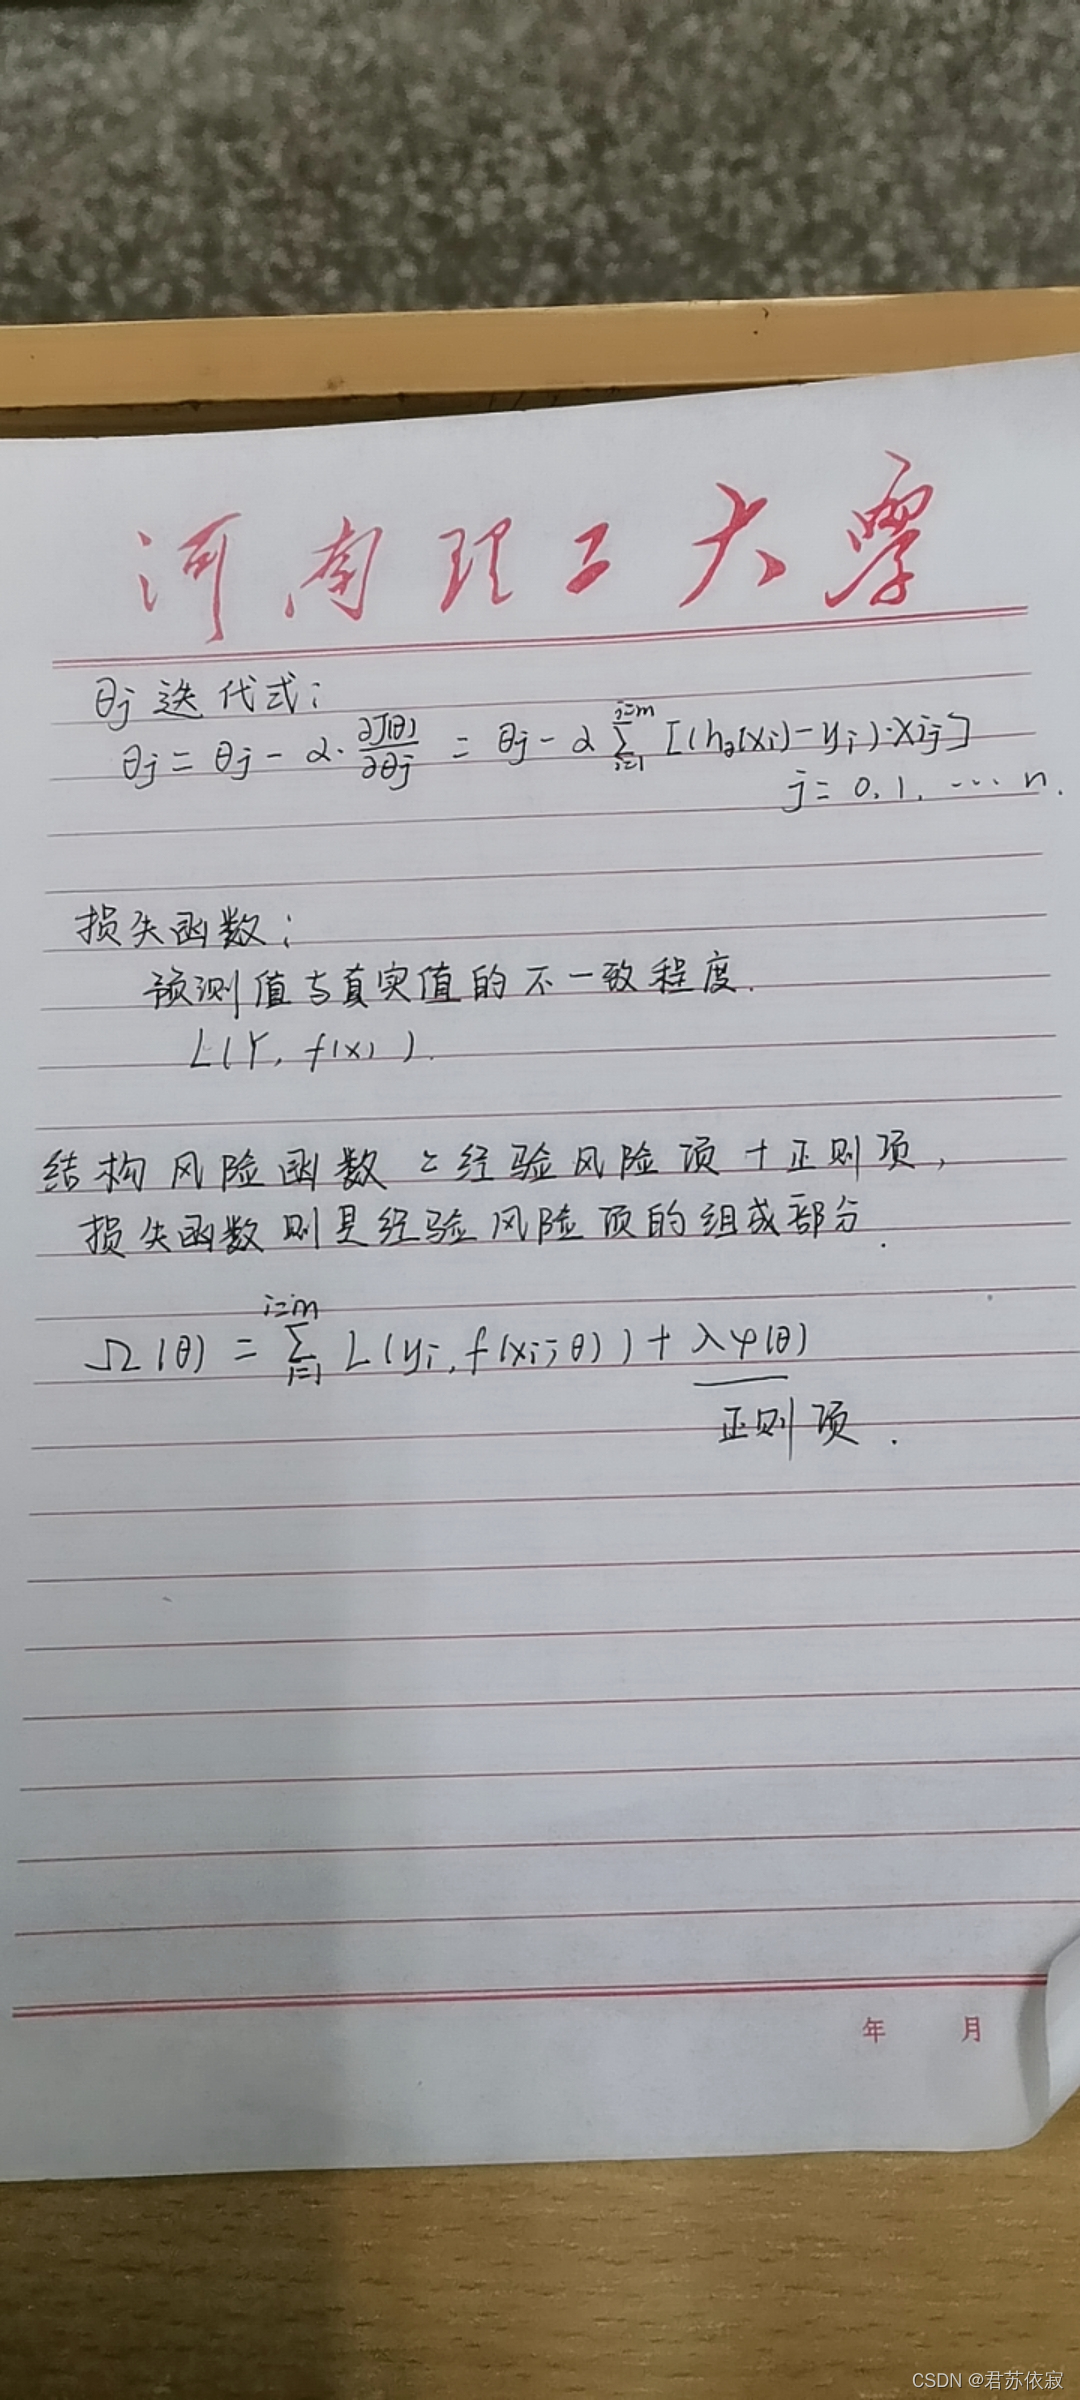 河南理工大学
θj 迭代式:
θj = θj - α· ∂J(θ)/∂θj = θj - α ∑_{i=1}^{i=m} [(hθ(xi) - yi)·xij]
j = 0, 1, … n.
损失函数:
预测值与真实值的不一致程度.
L(Y, f(x)).
结构风险函数 = 经验风险项 + 正则项,
损失函数则是经验风险项的组成部分.
Ω(θ) = ∑_{i=1}^{i=m} L(yi, f(xi; θ)) + λφ(θ)
正则项.
年 月
CSDN @君苏依寂